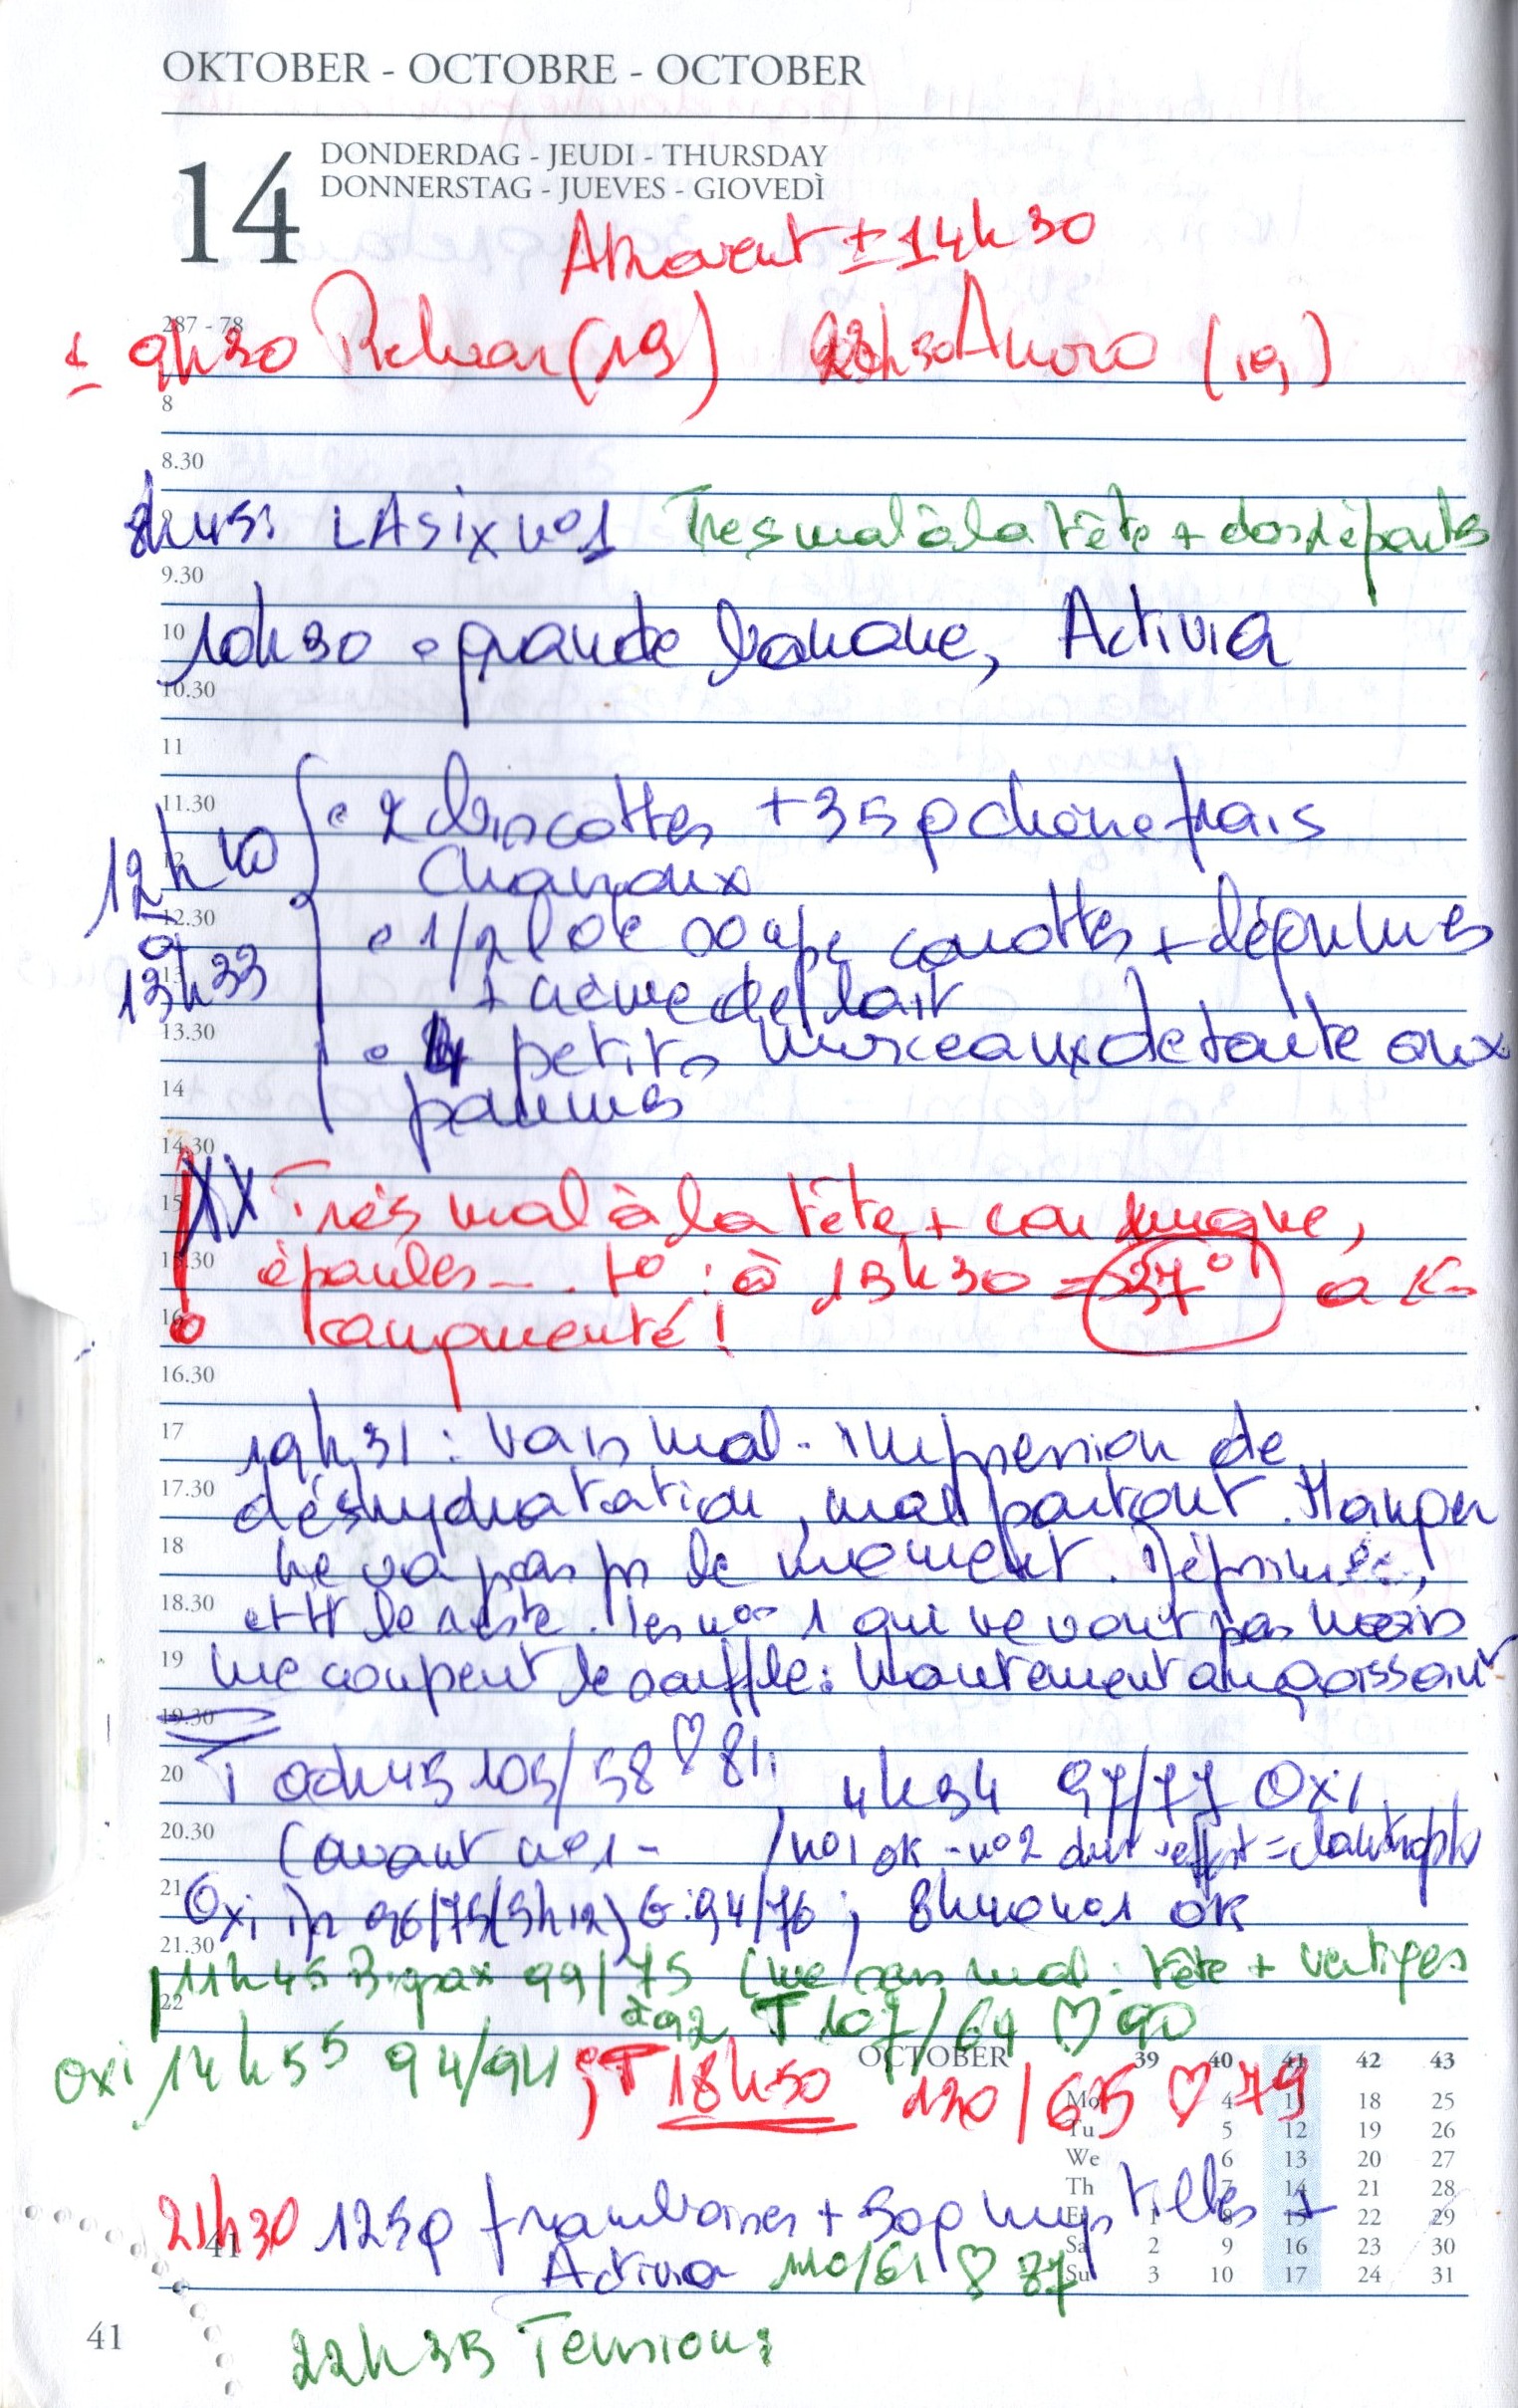 OKTOBER - OCTOBRE - OCTOBER
14
DONDERDAG - JEUDI - THURSDAY
DONNERSTAG - JUEVES - GIOVEDÌ
Atrovent ± 14h30
287 - 78
± 9h30 Relvar (19) 23h30 Anoro (19)
8
8.30
8h45: LASIX n°1 Tres mal à la tête + dos + épaules
9.30
10 10h30 • grande banane, Activia
10.30
11
11.30 • 2 biscottes + 35 g chèvre frais
12h10 Chavroux
12.30 • 1/2 l de soupe carottes + légumes
à
13 13h33 + crème de lait
13.30 • 4 petits morceaux de tarte aux
14 pommes
14.30
15 XX Très mal à la tête + cou nuque,
15.30 épaules - . t° : à 15h30 = 37° a
16 augmenté !
16.30
17 19h31 : vais mal - impression de
17.30 déshydratation, mal partout. Manger
18 ne va pas pr le moment. Déprimée,
18.30 et tt le reste. Les n°s 1 qui ne vont pas bien
19 me coupent le souffle : hautement angoissant
19.30
20 T 0h45 105/58 ♡ 81, 4h34 97/77 Oxi
20.30 (avant n°1 - / n°1 ok - n°2 effet =
21 Oxi 96/75 (5h12) G : 94/76 ; 8h40 n°1 ok
21.30 11h45 99/75 (me sens mal : tête + vertiges
22 à 92 T 107/64 ♡ 90
oxi 14h55 94/94 ; T 18h50 120/65 ♡ 79
OCTOBER 39 40 41 42 43
Mo 4 11 18 25
Tu 5 12 19 26
We 6 13 20 27
Th 7 14 21 28
Fr 1 8 15 22 29
Sa 2 9 16 23 30
Su 3 10 17 24 31
21h30 125g framboises + 50g myrtilles +
41
Activia 110/61 ♡ 87
41
22h35 Tension :